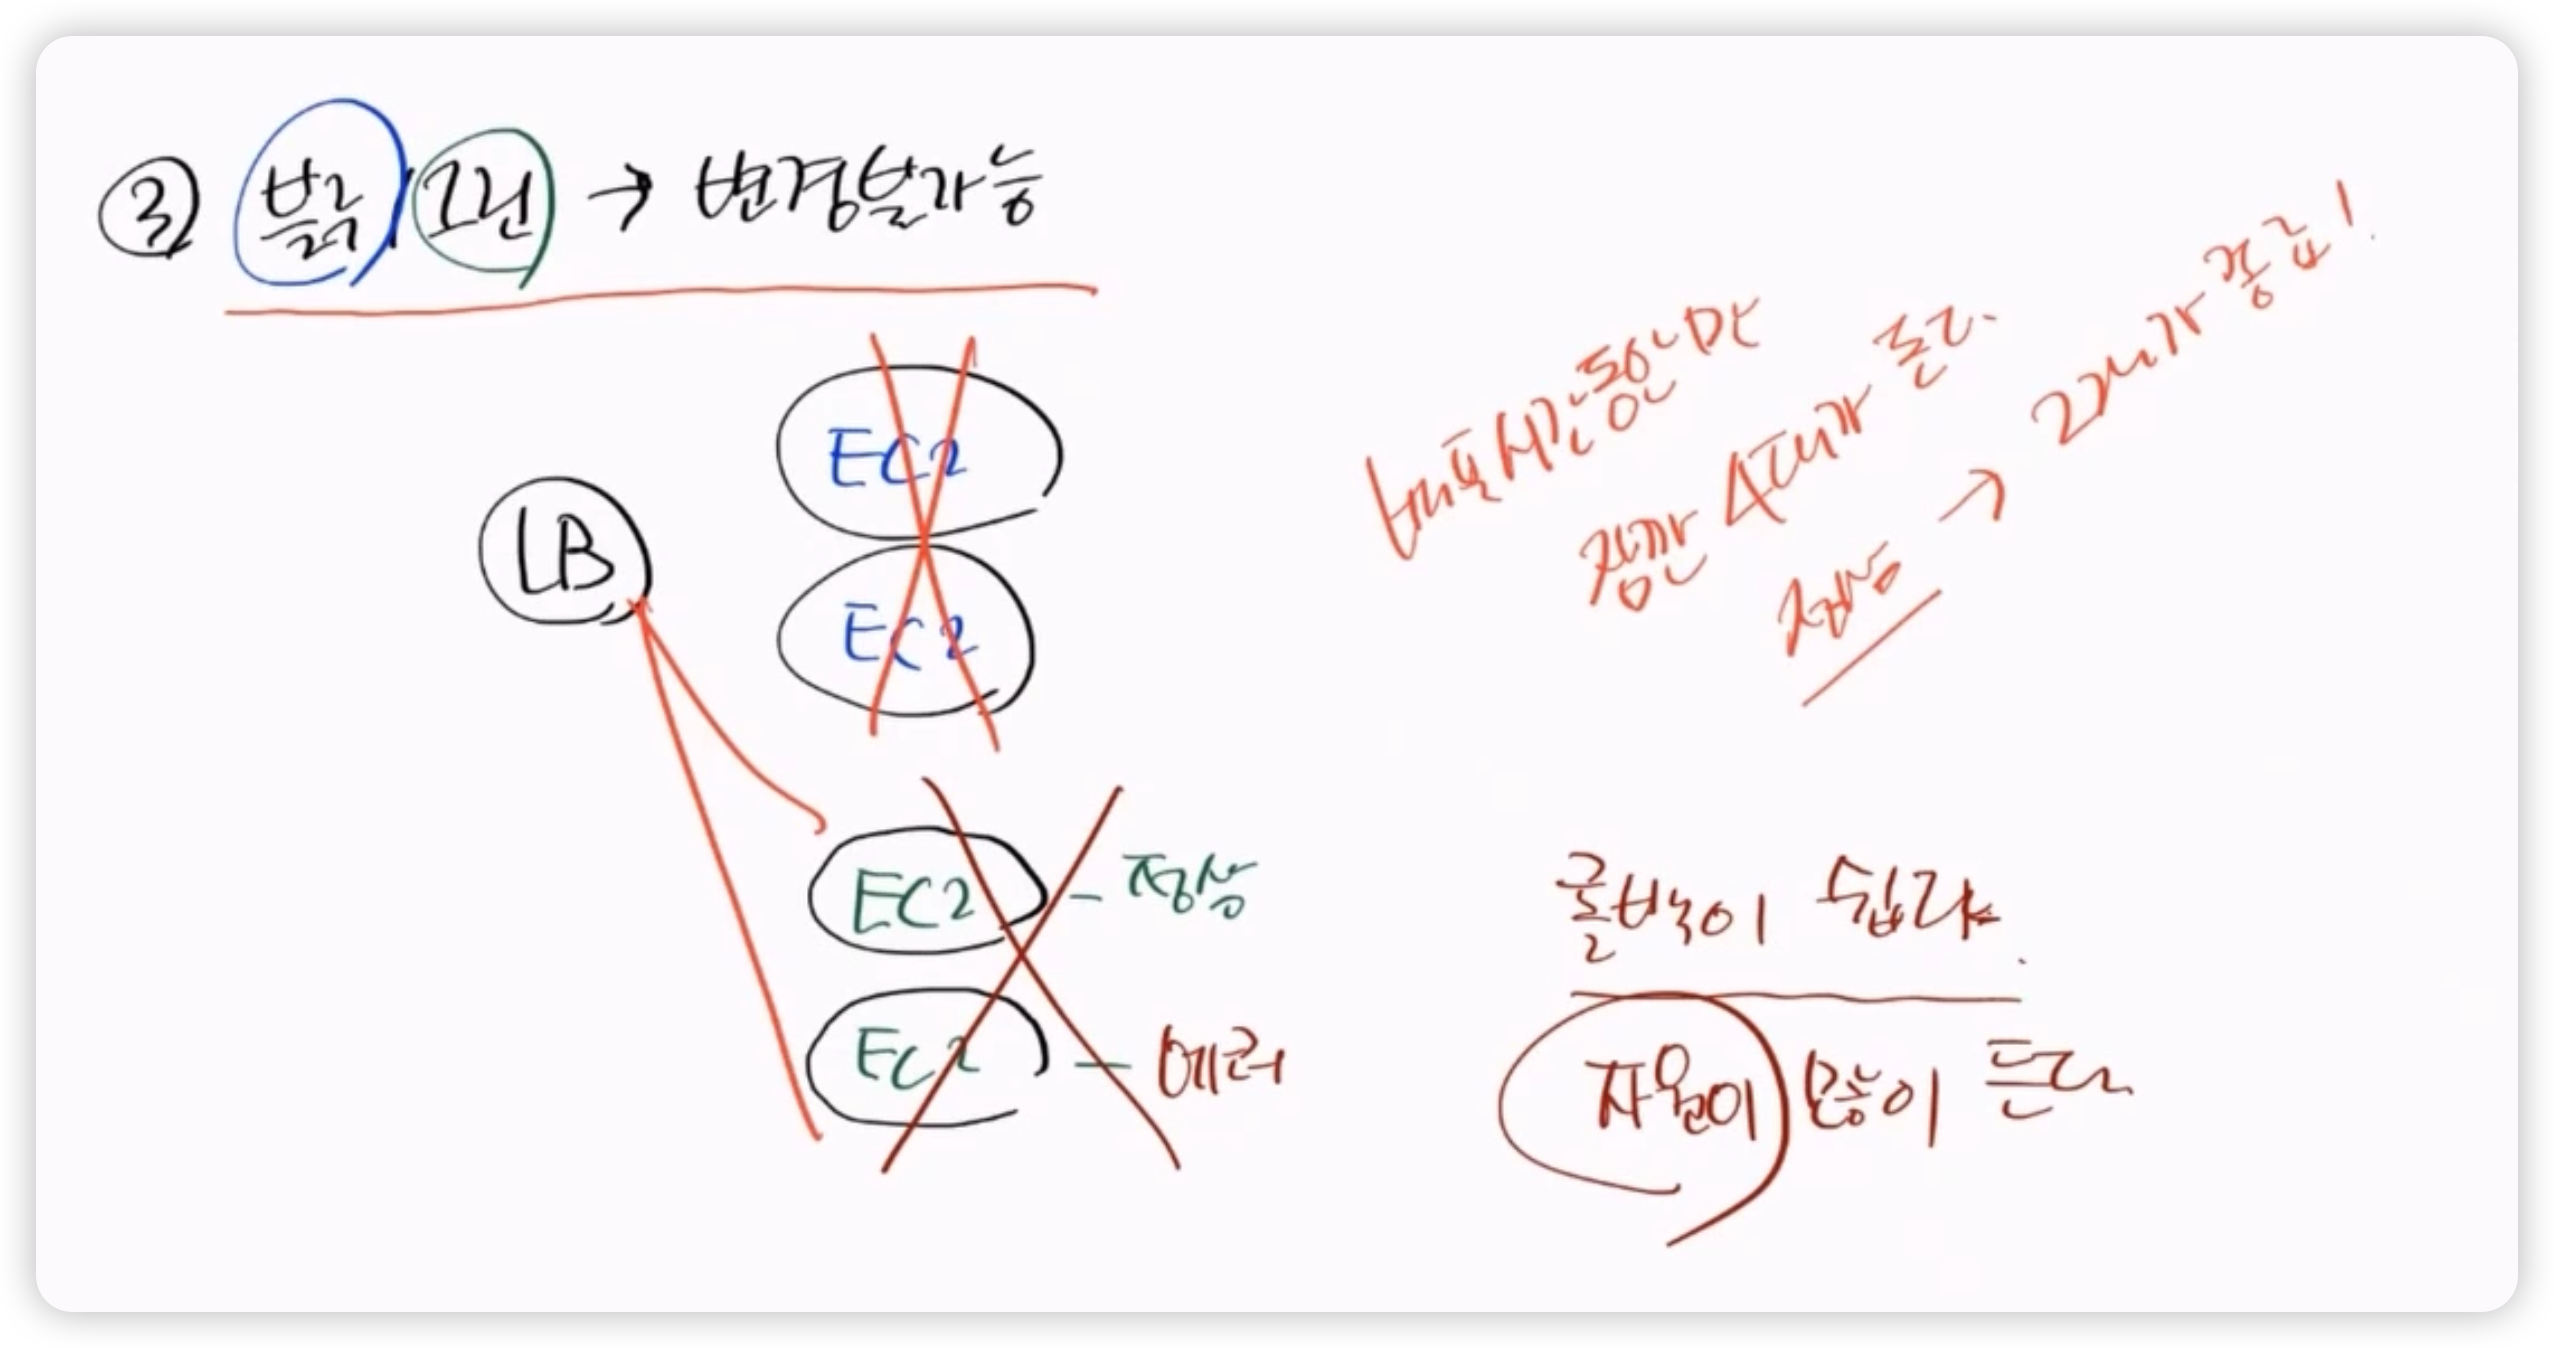 ③ 블루/그린 → 변경불가능
EC2
LB
EC2
EC2 - 정상
EC2 - 에러
배포시간동안만
잠깐 4대가 돈다.
정상 → 2개가 종료!
롤백이 쉽다.
자원이 많이 든다